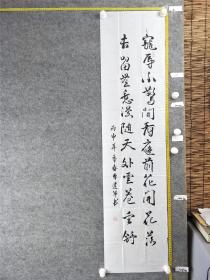 寵辱不驚閒看庭前花開花落
去留無意漫随天外雲卷云舒
丙申年春書